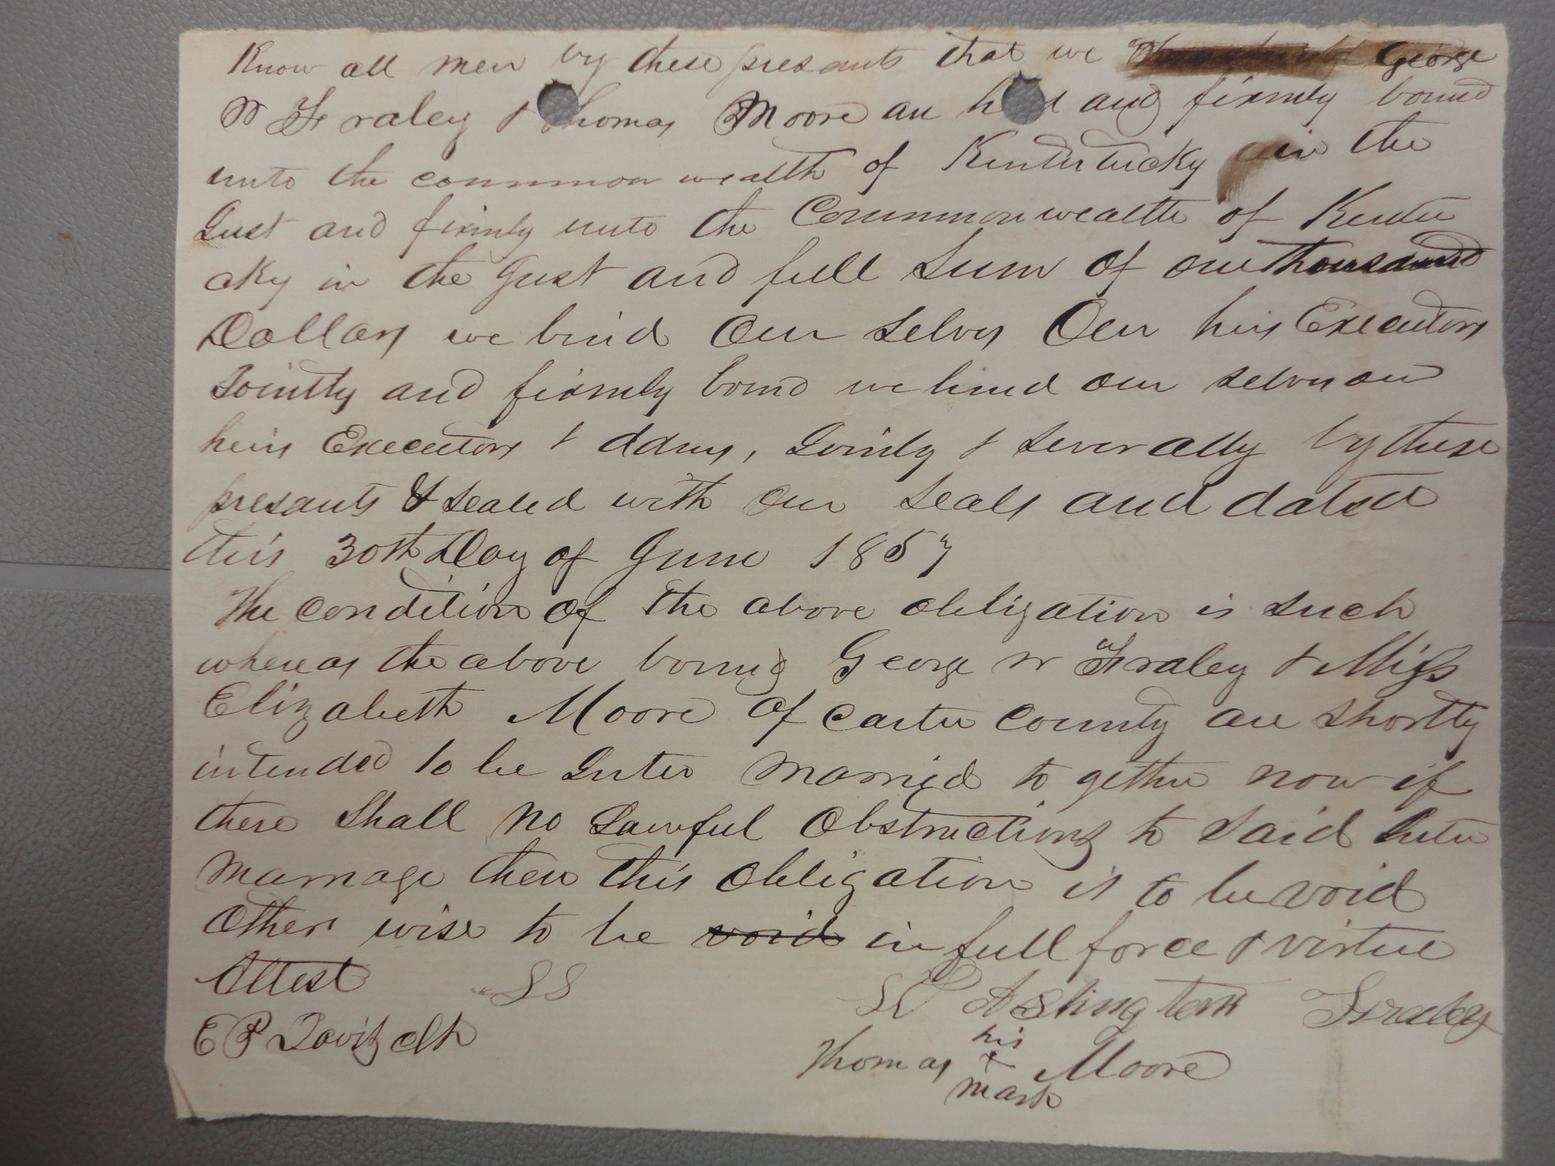 Know all men by these presants that we George
W Fraley & Thomas Moore an h d and firmly bound
unto the common wealth of Kentertucky in the
Just and firmly unto the Commonwealth of Kentu
cky in the Just and full Sum of one thousand
Dollars we bind Our selvs Our heirs Executors
Jointly and firmly bound we bind our selves our
heirs Executors & Adms, Jointly & severally by these
presants & sealed with our seals and dated
this 30th Day of June 1857
The condition of the above obligation is such
whereas the above bound George W Fraley & Miss
Elizabeth Moore of Carter County are shortly
intended to be Inter married to gether now if
there shall no Lawful Obstructions to said Inter
marriage then this obligation is to be void
Other wise to be void in full force & virtue
Attest SS
Fraley
E P Davis clk
his
Thomas x Moore
mark